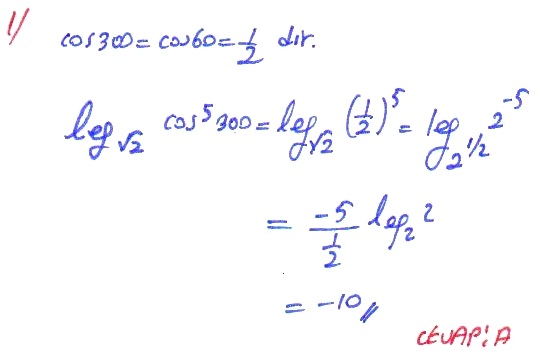 1)
cos300=cos60=1/2 dir.
log_√2 cos⁵300=log_√2 (1/2)⁵=log_2^1/2 2⁻⁵
= -5/(1/2) log₂2
= -10//
CEVAP:A